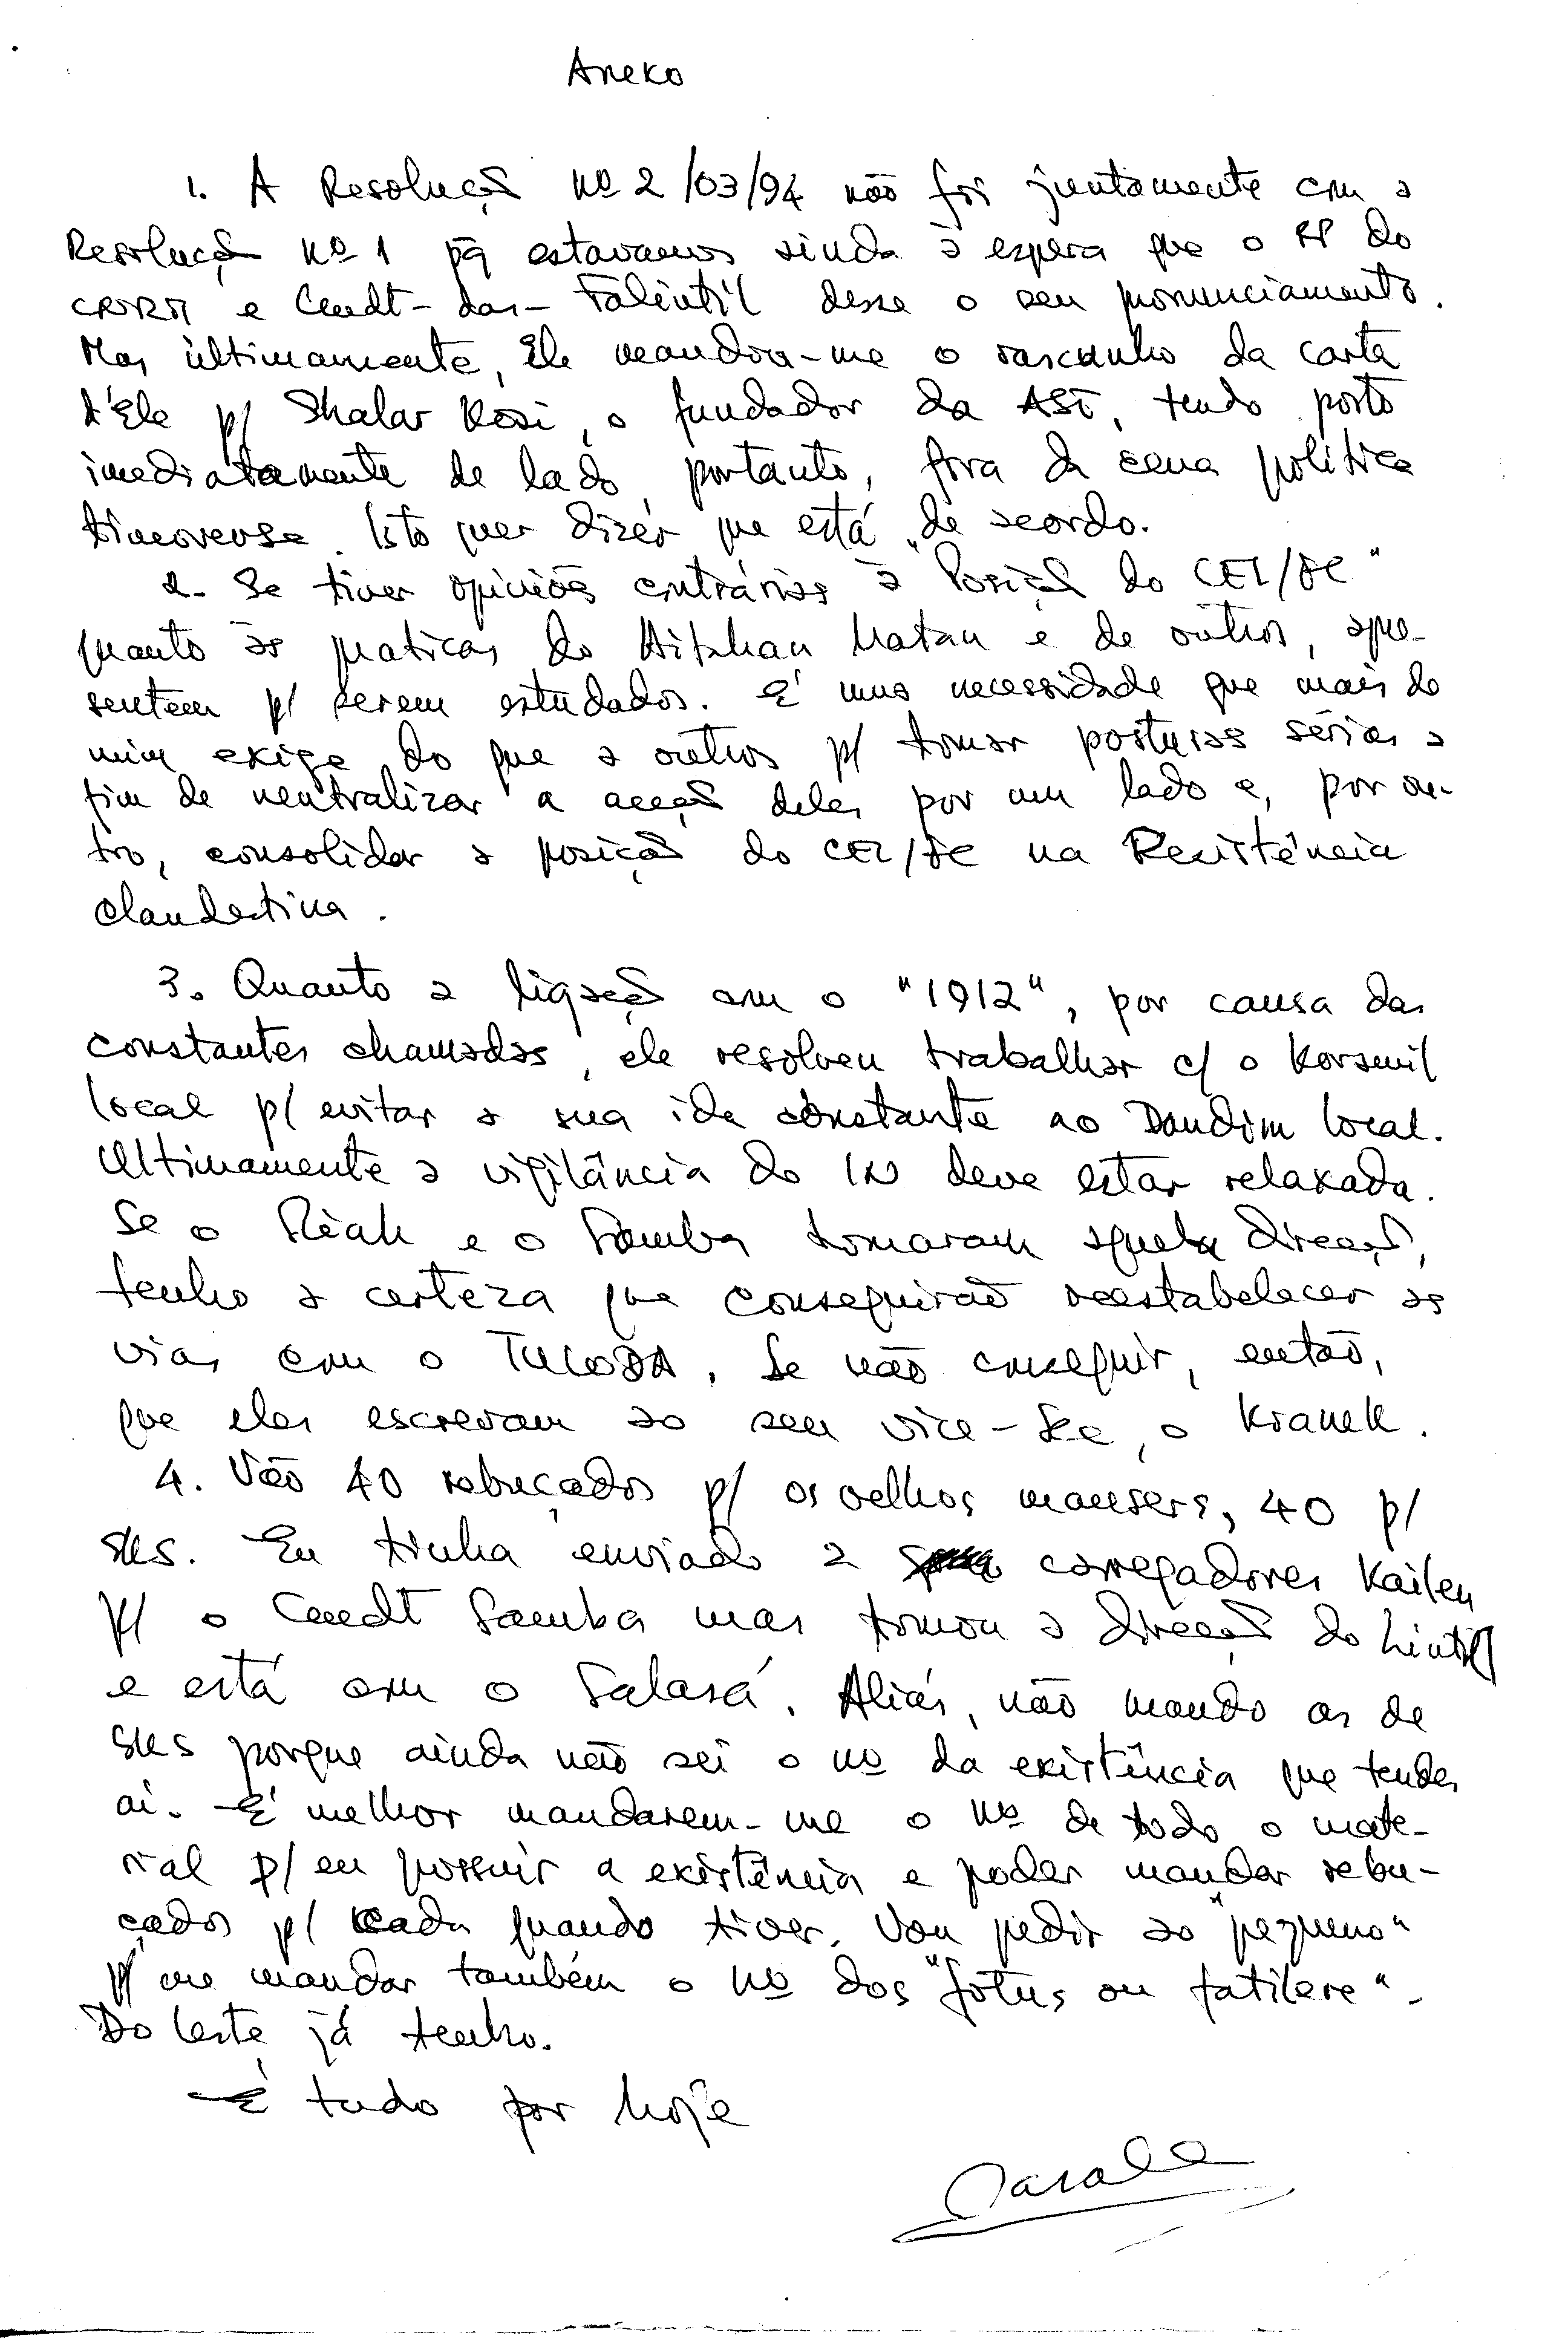 Aneko
1. A Resolução nº 2/03/94 não foi juntamente com a
Resolução nº 1 pq estavamos ainda à espera que o RP do
CRRM e Cmdt-das-Falintil desse o seu pronunciamento.
Mas ùltimamente, Ele mandou-me o rascunho da carta
d'Ele p/ Shalar Kosi, o fundador da AST, tendo posto
imediatamente de lado, portanto, fora da cena política
timorense. Isto quer dizer que está de acordo.
2. Se tiver opiniões contrárias à "Posição do CEL/FC"
quanto às praticas do Hitzhan Matan e de outros, apre-
sentem p/ serem estudados. É uma necessidade que mais de
mim exige do que a outros p/ tomar posturas sérias a
fim de neutralizar a acção deles por um lado e, por ou-
tro, consolidar a posição do CEL/FC na Resistência
clandestina.
3. Quanto a ligação com o "1912", por causa das
constantes chamadas, ele resolveu trabalhar c/ o Koramil
local p/ evitar a sua ida constante ao Dandim local.
Ultimamente a vigilância do IN deve estar relaxada.
Se o Riak e o Samba tomaram aquela direcção,
tenho a certeza que conseguirão reestabelecer as
vias com o TULODA. Se não conseguir, então,
que eles escrevam ao seu vice-Sec, o Kianek.
4. Vão 40 rebuçados p/ os velhos mausers, 40 p/
sks. Eu tinha enviado 2 carregadores Kailen
p/ o Cmdt Samba mas tomou a direcção do Lintil
e está com o Falasá. Aliás, não mando os de
sks porque ainda não sei o nº da existência que tendes
aí. É melhor mandarem-me o nº de todo o mate-
rial p/ eu possuir a existência e poder mandar rebu-
çados p/ cada quando tiver. Vou pedir ao "pequeno"
p/ me mandar também o nº dos "fotus ou fatilere".
Do leste já tenho.
É tudo por hoje